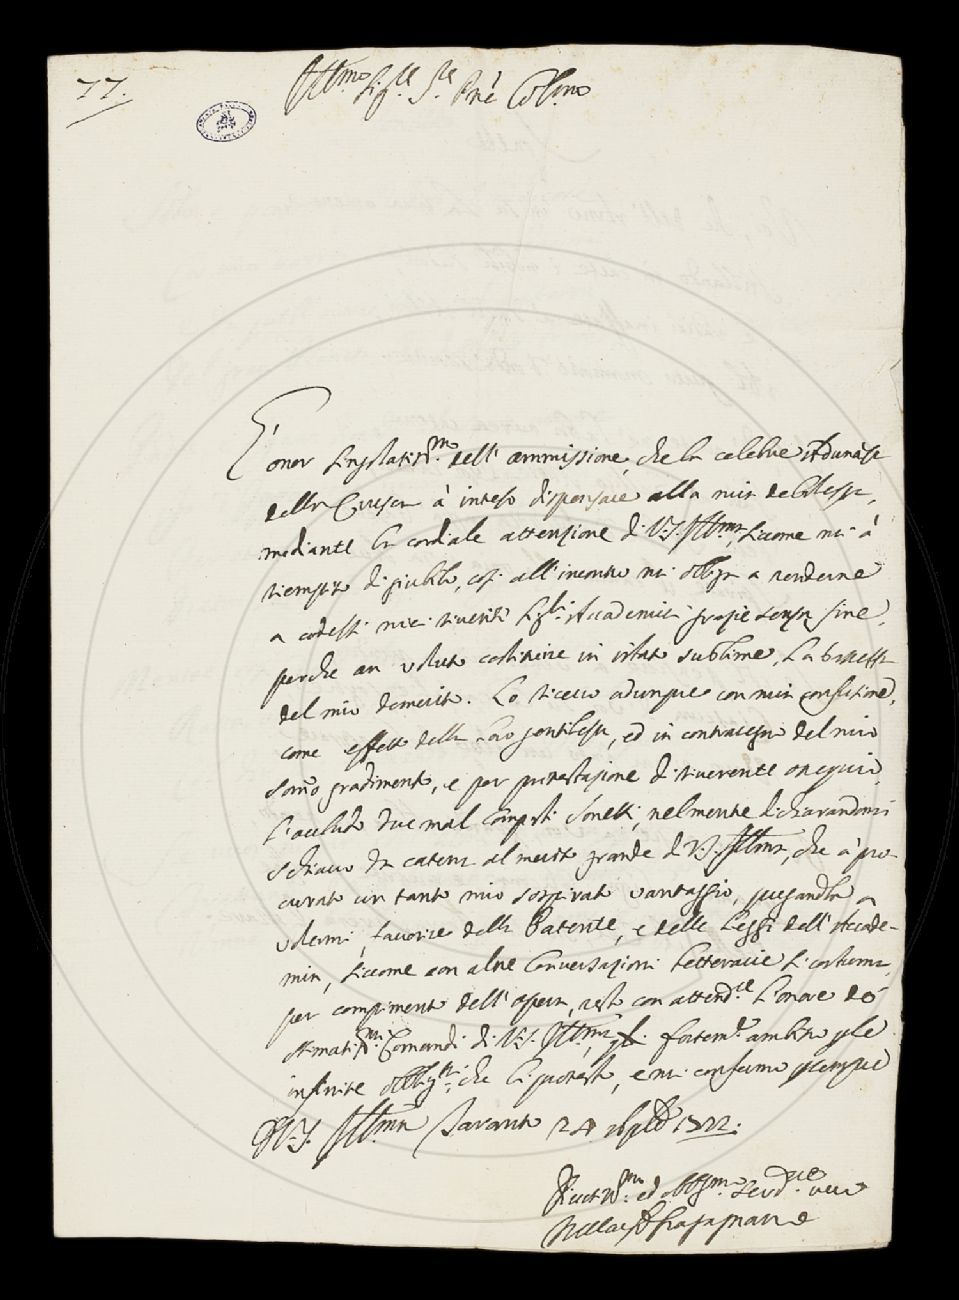 77.
Ill.mo Sig.re S.re P.ne Col.mo
L'onor singolariss.mo dell'ammissione, che la celebre Adunãse
della Crusca à inteso dispensare alla mia debolezza,
mediante la cordiale attenzione di V.S. Ill.ma, siccome mi à
riempito di giubilo, così all'incontro mi obliga a renderne
a codesti miei riveriti Sig.ri Accademici grazie senza fine,
perche an voluto costituire in istato sublime, la bassezza
del mio demerito. Lo ricevo adunque con mia confusione,
come effetto della loro gentilezza, ed in contrasegno del mio
sommo gradimento, e per protestazione di riverente ossequio,
l'accludo due mal composti sonetti, nelmente dichiarandomi
schiavo da catena al merito grande di V.S. Ill.ma, che à pro-
curato un tanto mio sospirato vantaggio, pregandola a
volermi favorire della Patente, e delle Leggi dell'Accade-
mia, siccome con altre Conversazioni Letterarie si costuma,
per compimento dell'opera, resto con attend.re l'onore de'
stimatiss.mi Comandi di V.S. Ill.ma, fortem.e ambito p le
infinite oblig.ni che li protesto, e mi confermo p sempre
D V.S. Ill.ma Taranto 24 1722.
Divotiss.mo ed Obligm.o Servid.re vero